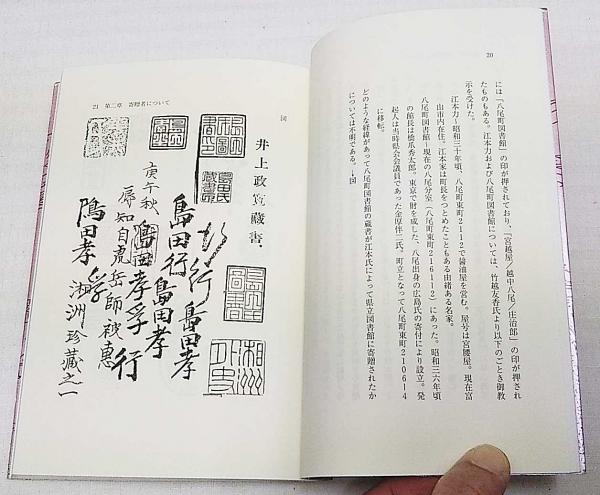 20
には「八尾町図書館」の印が押されており、「宮越屋/越中八尾/庄治郎」の印が押され
たものもある。江本力および八尾町図書館については、竹越友香氏より以下のごとき御教
示を受けた。
江本力~昭和三十年頃、八尾町東町2112で醤油屋を営む。屋号は宮腰屋。現在富
山市内在住。江本家は町長をつとめたこともある由緒ある名家。
八尾町図書館~現在の八尾分室(八尾町東町216112)にあった。昭和三六年頃
の館長は橋爪秀太郎。東京で財を成した、八尾出身の広島氏の寄付により設立。発
起人は当時県会議員であった金厚伴二氏。町立となって八尾町東町210614
に移転。
どのような経緯があって八尾町図書館の蔵書が江本氏によって県立図書館に寄贈されたか
については不明である。→図
21 第二章 寄贈者について
図
井上政寛蔵書.
島田孝
行
島田行
島田孝
島田孝孚行
庚午秋
辱知自虎岳師被惠
湘洲珍蔵之一
島田孝孚